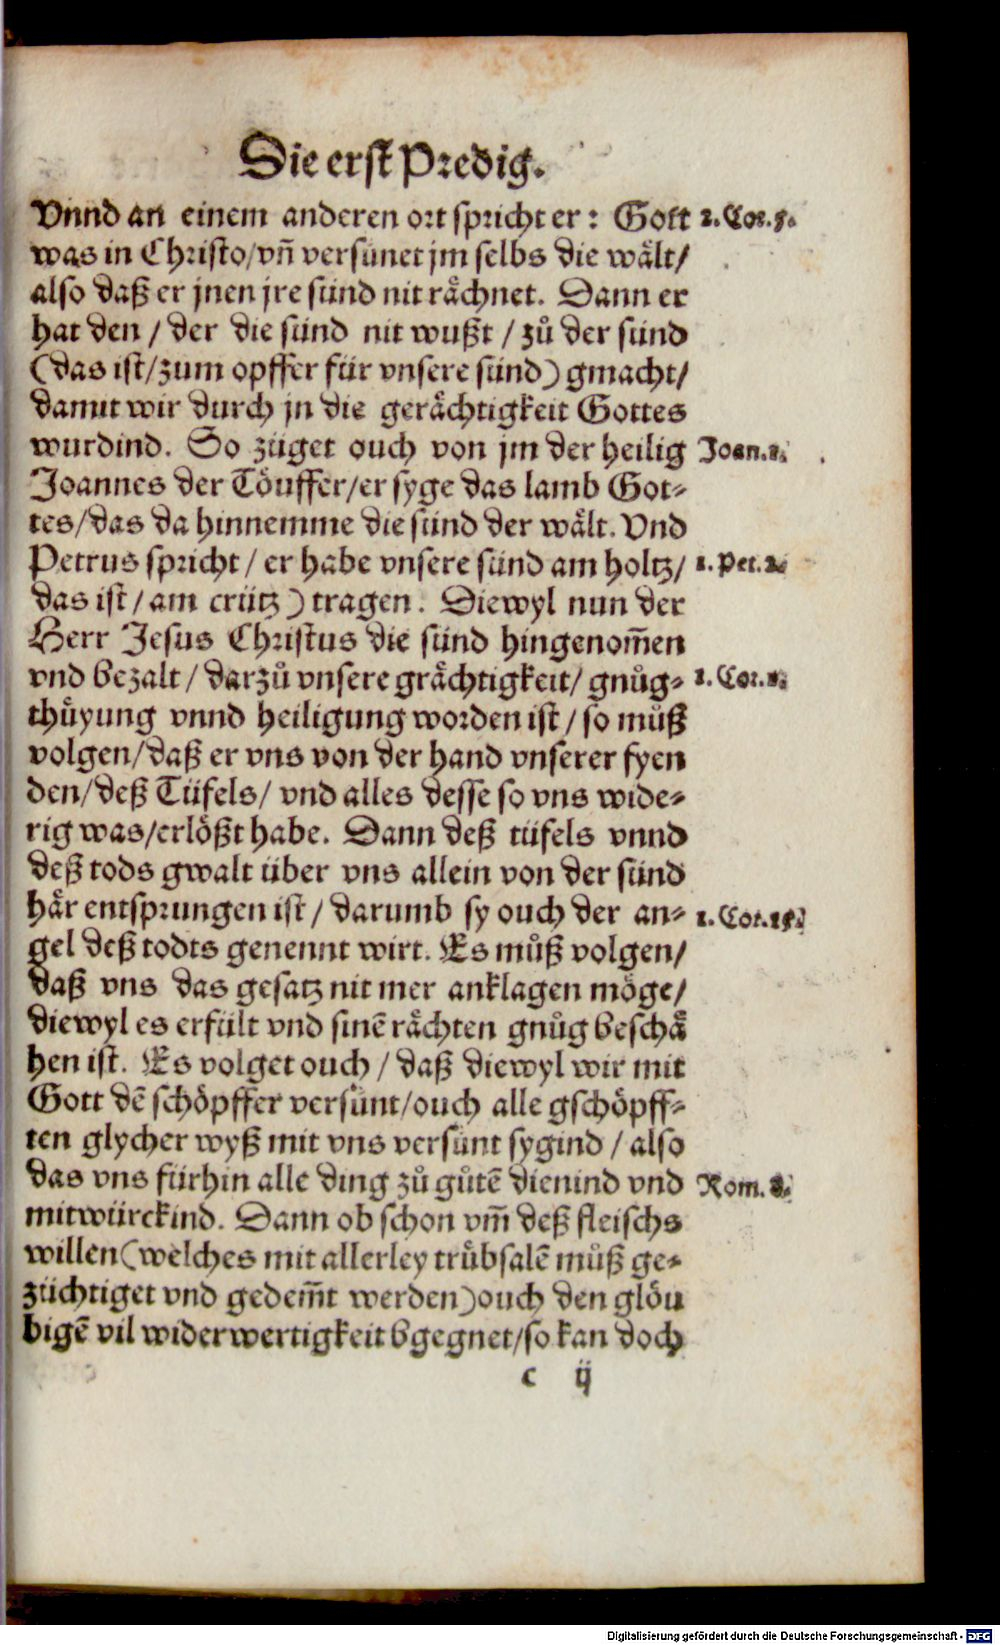 Die erst Predig.
Vnnd an einem anderen ort spricht er: Gott 2. Cor. 5.
was in Christo/vñ versünet jm selbs die wält/
also daß er jnen jre sünd nit rächnet. Dann er
hat den / der die sünd nit wußt / zů der sünd
(das ist/zum opffer für vnsere sünd) gmacht/
damit wir durch jn die gerächtigkeit Gottes
wurdind. So züget ouch von jm der heilig Joan. 1.
Joannes der Töuffer/er syge das lamb Got-
tes/das da hinnemme die sünd der wält. Vnd
Petrus spricht / er habe vnsere sünd am holtz/ 1. Pet. 2.
das ist / am crütz) tragen. Diewyl nun der
Herr Jesus Christus die sünd hingenom̃en
vnd bezalt / darzů vnsere grächtigkeit/ gnůg- 1. Cor. 1.
thůyung vnnd heiligung worden ist / so můß
volgen/daß er vns von der hand vnserer fyen
den/deß Tüfels/ vnd alles desse so vns wide-
rig was/erlößt habe. Dann deß tüfels vnnd
deß tods gwalt über vns allein von der sünd
här entsprungen ist / darumb sy ouch der an- 1. Cor. 15.
gel deß todts genennt wirt. Es můß volgen/
daß vns das gesatz nit mer anklagen möge/
diewyl es erfült vnd sinē rächten gnůg beschä
hen ist. Es volget ouch / daß diewyl wir mit
Gott dē schöpffer versünt/ouch alle gschöpff-
ten glycher wyß mit vns versünt sygind / also
das vns fürhin alle ding zů gůtē dienind vnd Rom. 8.
mitwürckind. Dann ob schon vm̃ deß fleischs
willen (welches mit allerley trůbsalē můß ge-
züchtiget vnd gedem̃t werden) ouch den glöu
bigē vil widerwertigkeit bgegnet/so kan doch
c ij
Digitalisierung gefördert durch die Deutsche Forschungsgemeinschaft - DFG